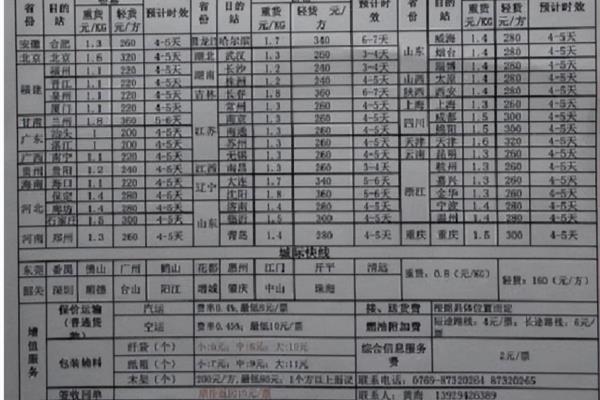 省份 目的站 重货元/KG 轻货元/方 预计时效 省份 目的站 重货元/KG 轻货 元/方 预计时效 省份 目的站 重货元/KG 轻货元/方 预计时效
安徽 合肥 1.3 260 4-5天 黑龙江 哈尔滨 1.7 340 6-7天 山东 威海 1.4 280 4-5天
北京 北京 1.6 320 4-5天 湖北 武汉 1.3 260 3-4天 烟台 1.4 280 4-5天
福建 福州 1.1 220 4-5天 湖南 长沙 1.2 240 3-4天 淄博 1.4 280 4-5天
晋江 1.1 220 4-5天 株洲 1.2 240 4-5天 山西 太原 1.4 280 4-5天
泉州 1.1 220 4-5天 吉林 长春 1.8 360 6-7天 陕西 西安 1.4 280 4-5天
厦门 1.1 220 4-5天 江苏 常州 1.3 260 4-5天 上海 上海 1.3 260 4-5天
甘肃 兰州 1.8 360 5-6天 南京 1.3 260 4-5天 四川 成都 1.5 300 4-5天
广东 汕头 1 200 4-5天 南通 1.3 260 4-5天 绵阳 1.5 300 4-5天
湛江 1 200 4-5天 苏州 1.3 260 4-5天 天津 天津 1.6 320 4-5天
广西 南宁 1.1 220 4-5天 无锡 1.3 260 4-5天 云南 昆明 1.3 260 4-5天
贵州 贵阳 1.2 240 4-5天 江西 南昌 1.3 260 3-4天 浙江 杭州 1.3 260 4-5天
海南 海口 1.1 220 4-5天 辽宁 大连 1.7 340 5-6天 嘉兴 1.3 260 4-5天
河北 保定 1.4 280 4-5天 沈阳 1.8 360 5-6天 金华 1.3 260 4-5天
廊坊 1.4 280 4-5天 山东 济南 1.4 280 4-5天 宁波 1.4 280 4-5天
石家庄 1.5 300 4-5天 临沂 1.5 300 4-5天 温州 1.4 280 4-5天
河南 郑州 1.3 260 4-5天 青岛 1.4 280 4-5天 重庆 重庆 1.5 300 4-5天
城际快线
东莞 番禺 佛山 广州 鹤山 花都 惠州 江门 开平 清远 重货:0.8(元/KG) 轻货:160(元/方)
韶关 深圳 顺德 台山 阳江 增城 肇庆 中山 珠海
增值服务 保价运输(普通货物) 汽运 费率0.4%,最低8元/票 接、送货费 根据具体位置而定
空运 费率0.45%,最低10元/票 燃油附加费 短途路线:4元/票;长途路线:6元/票
包装辅料 纤袋(个) 小:5元;中:8元;大:10元 综合信息服务费 2元/票
纸箱(个) 小:7元;中:9元;大:11元
木架(个) 200元/方,最低80元;1个方以上面议 联系电话:0769-87320264 87320265
签收回单 联系人:黄海 13929426389